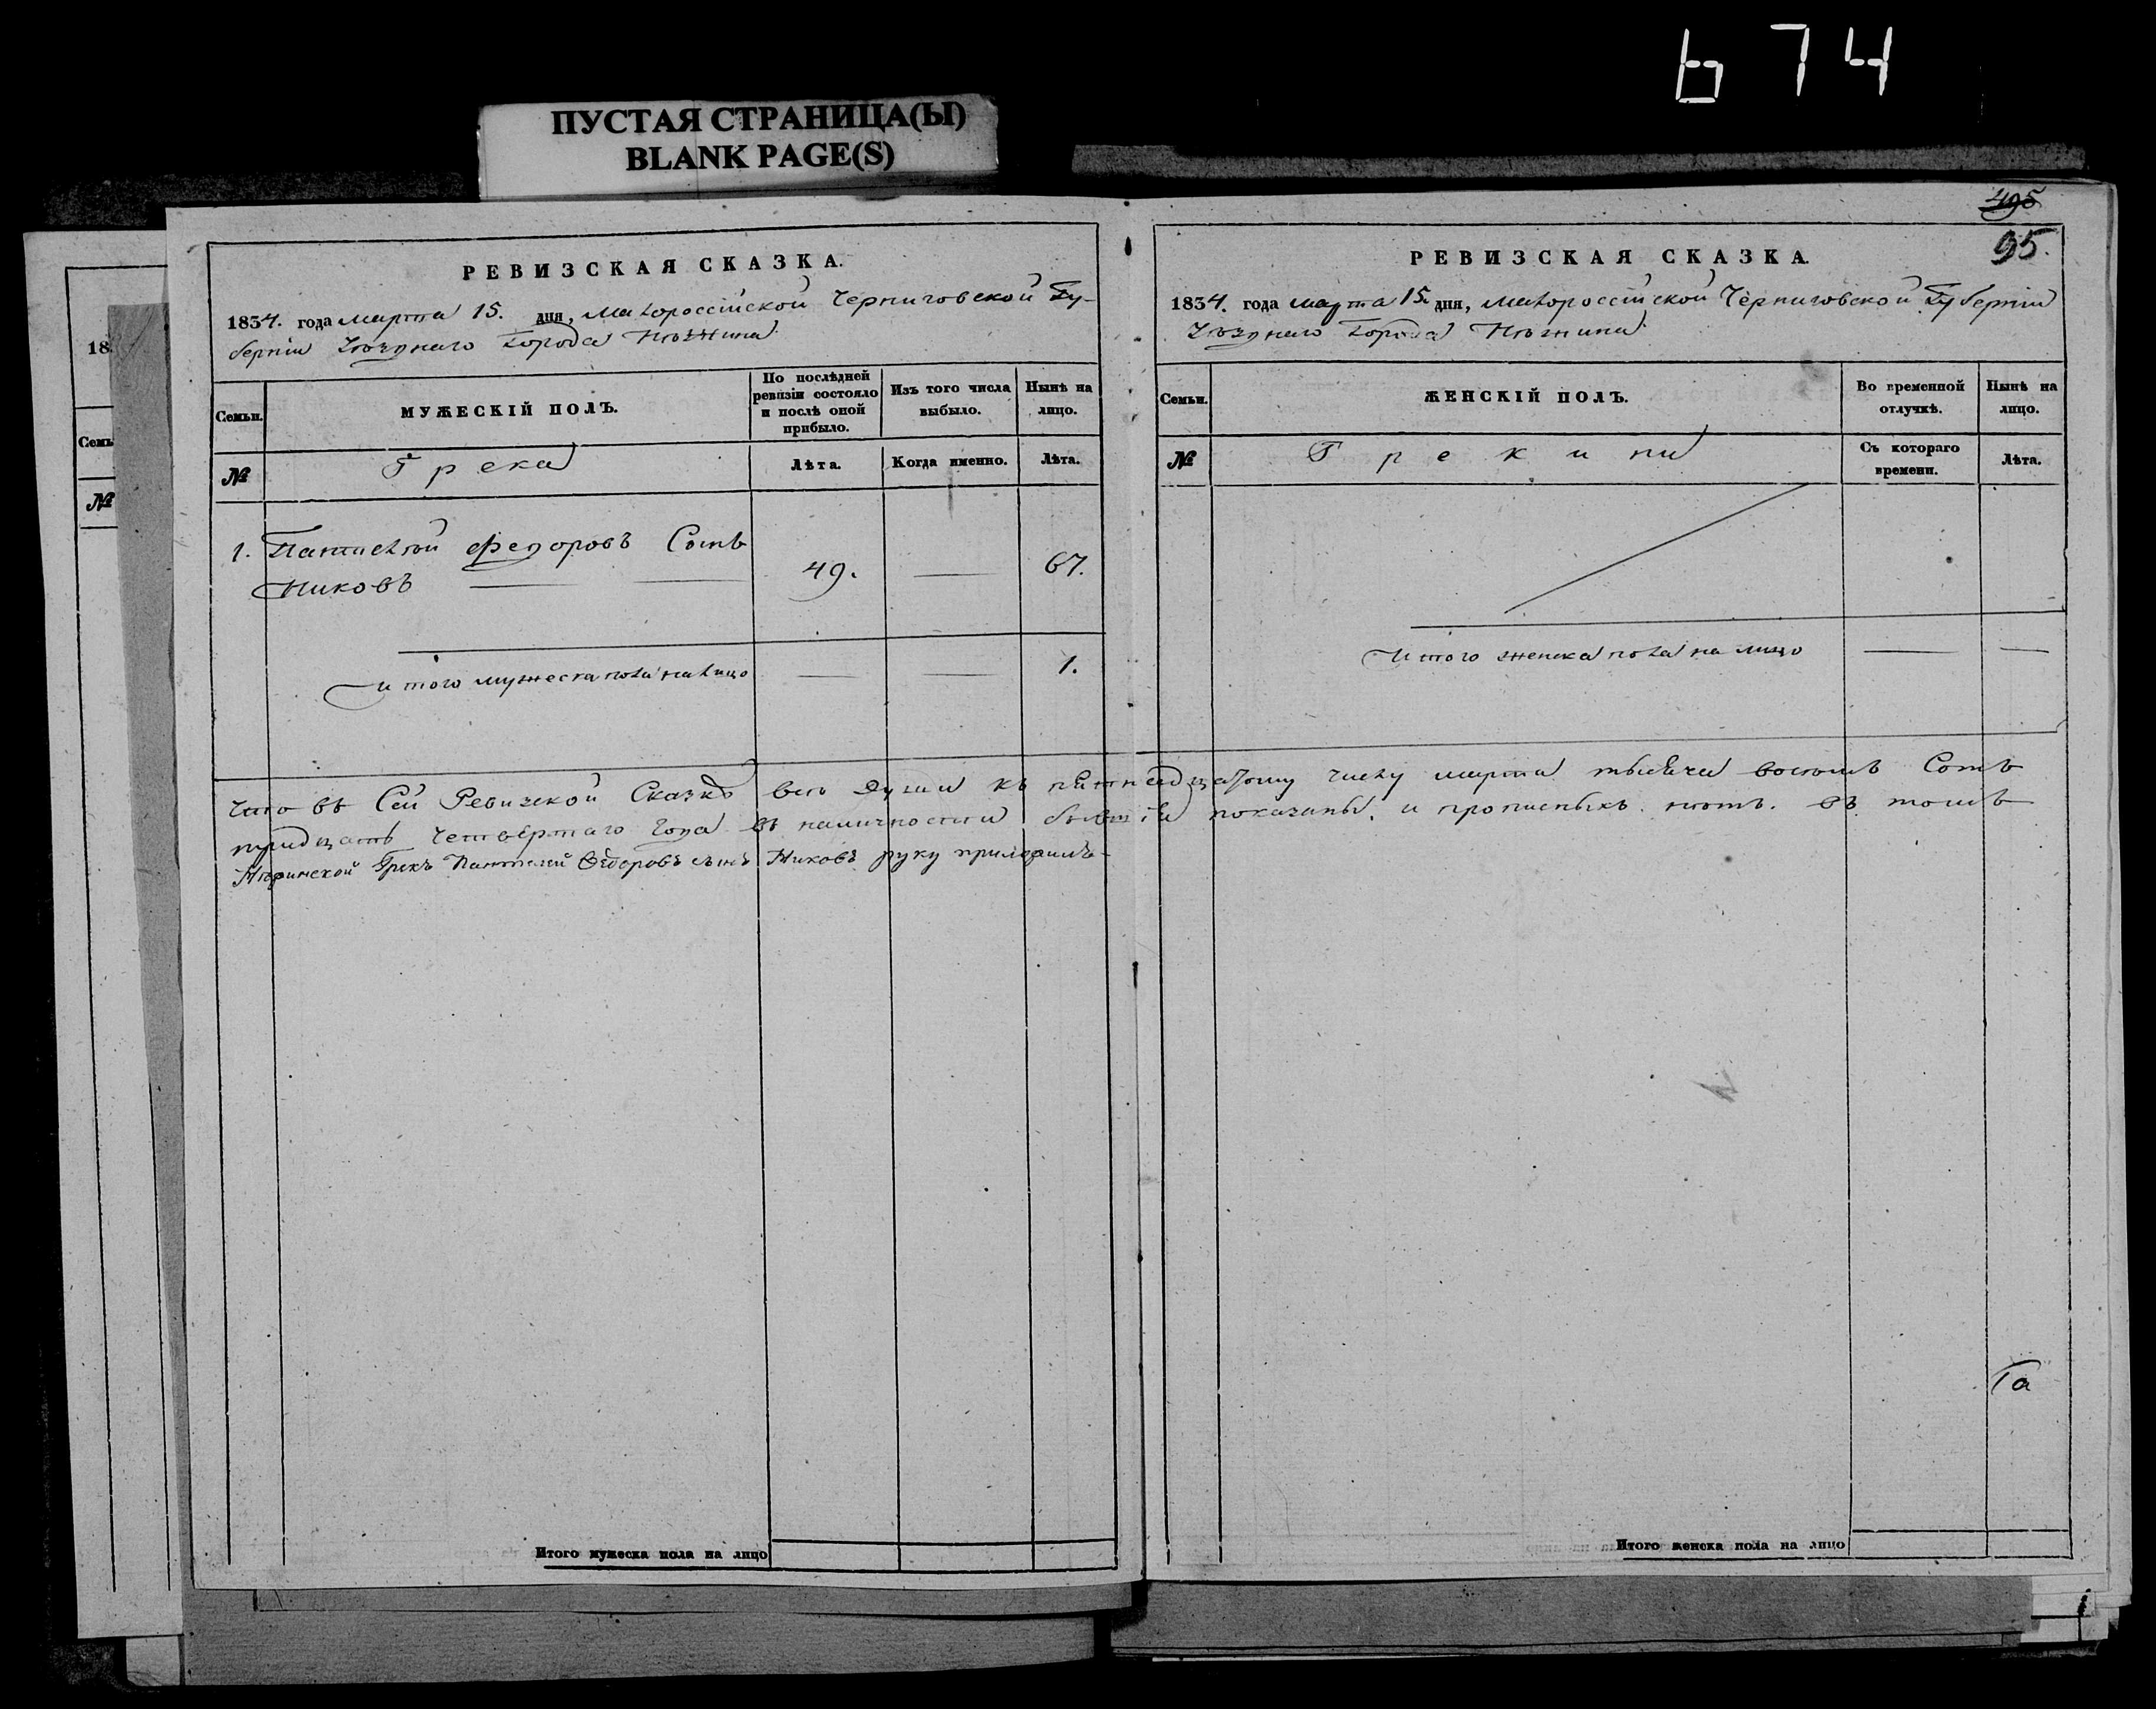 674
ПУСТАЯ СТРАНИЦА(Ы)
BLANK PAGE(S)
18
Семь
№
РЕВИЗСКАЯ СКАЗКА.
1834. года марта 15. дня, Малороссійской Черниговской Гу-
берніи Уѣзднаго Города Нѣжина
Семьи.
МУЖЕСКІЙ ПОЛЪ.
По послѣдней ревизіи состояло и послѣ оной прибыло.
Изъ того числа выбыло.
Нынѣ на лицо.
№
Грека
Лѣта.
Когда именно.
Лѣта.
1. Пантелей Федоровъ Сынъ
Никовъ 49. 67.
Итого мужеска пола на лицо 1.
495
95.
РЕВИЗСКАЯ СКАЗКА.
1834. года марта 15. дня, Малороссійской Черниговской Губерніи
Уѣзднаго Города Нѣжина
Семьи.
ЖЕНСКІЙ ПОЛЪ.
Во временной отлучкѣ.
Нынѣ на лицо.
№
Грекини
Съ котораго времени.
Лѣта.
Итого женска пола на лицо
Что въ Сей Ревизской Сказкѣ все души къ пятнадцатому числу марта тысяча восемь Сотъ
тридцать Четвертаго Года въ наличности бывшіе показаны, и прописныхъ нѣтъ. въ томъ
Нѣжинской Грекъ Пантелей Федоровъ сынъ Никовъ руку приложилъ
Итого мужеска пола на лицо
Итого женска пола на лицо